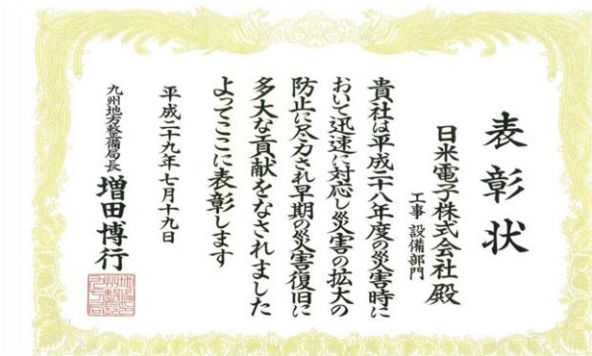 表彰状
日米電子株式会社 殿
工事 設備部門
貴社は平成二十八年度の災害時に
おいて迅速に対応し災害の拡大の
防止に尽力され早期の災害復旧に
多大な貢献をなされました
よってここに表彰します
平成二十九年七月十九日
九州地方整備局長 増田博行